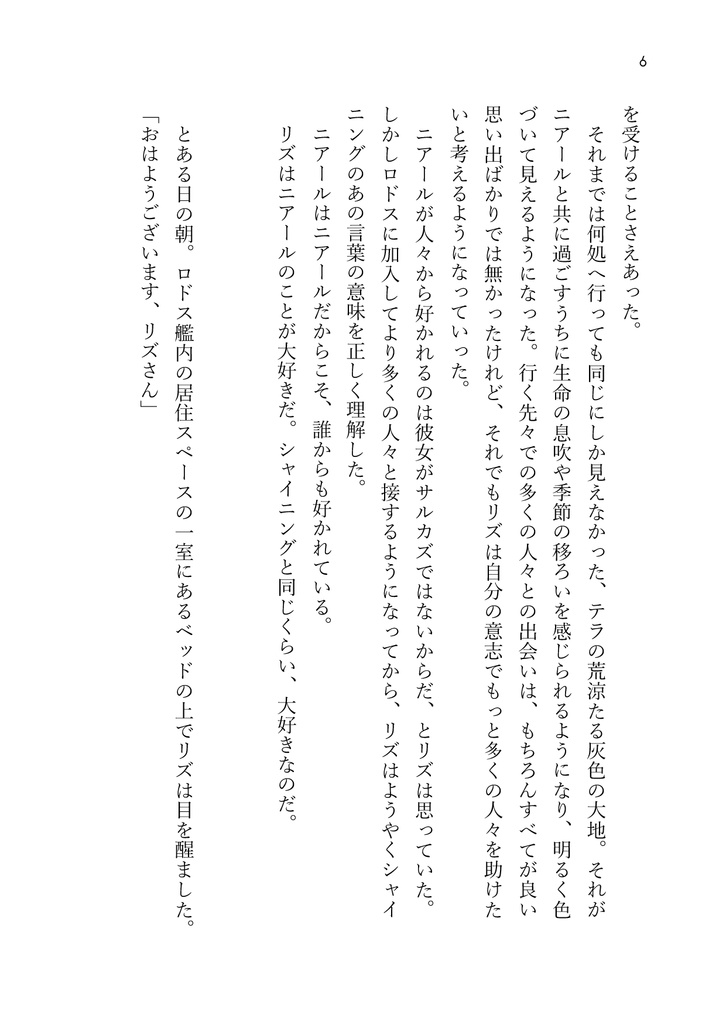 6
を受けることさえあった。
それまでは何処へ行っても同じにしか見えなかった、テラの荒涼たる灰色の大地。それが
ニアールと共に過ごすうちに生命の息吹や季節の移ろいを感じられるようになり、明るく色
づいて見えるようになった。行く先々での多くの人々との出会いは、もちろんすべてが良い
思い出ばかりでは無かったけれど、それでもリズは自分の意志でもっと多くの人々を助けた
いと考えるようになっていった。
ニアールが人々から好かれるのは彼女がサルカズではないからだ、とリズは思っていた。
しかしロドスに加入してより多くの人々と接するようになってから、リズはようやくシャイ
ニングのあの言葉の意味を正しく理解した。
ニアールはニアールだからこそ、誰からも好かれている。
リズはニアールのことが大好きだ。シャイニングと同じくらい、大好きなのだ。
とある日の朝。ロドス艦内の居住スペースの一室にあるベッドの上でリズは目を醒ました。
「おはようございます、リズさん」